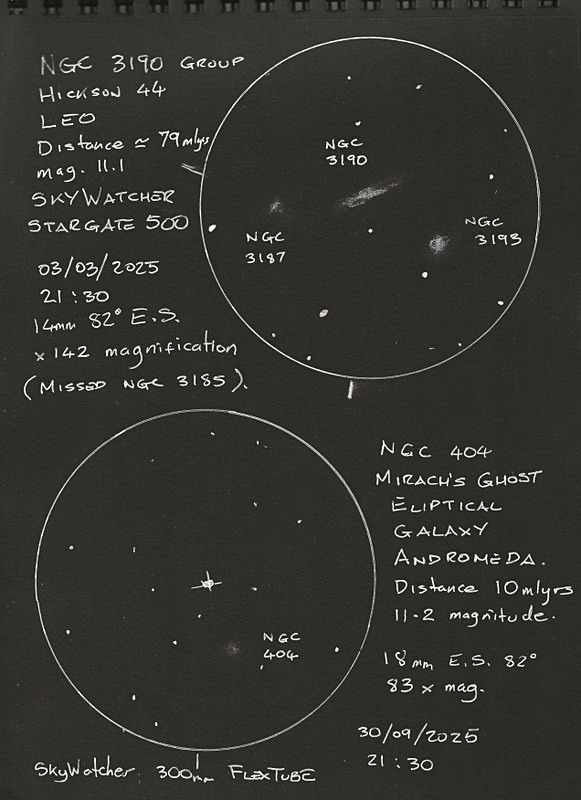 NGC 3190 GROUP
HICKSON 44
LEO
Distance ≃ 79 mlyrs
mag. 11.1
SKYWATCHER
STARGATE 500
03/03/2025
21:30
14mm 82° E.S.
x 142 magnification
(MISSED NGC 3185).
NGC
3190
NGC
3187
NGC
3193
NGC 404
MIRACH'S GHOST
ELIPTICAL
GALAXY
ANDROMEDA.
Distance 10 mlyrs
11.2 magnitude.
18mm E.S. 82°
83 x mag.
30/09/2025
21:30
NGC
404
SkyWatcher 300mm FLEXTUBE